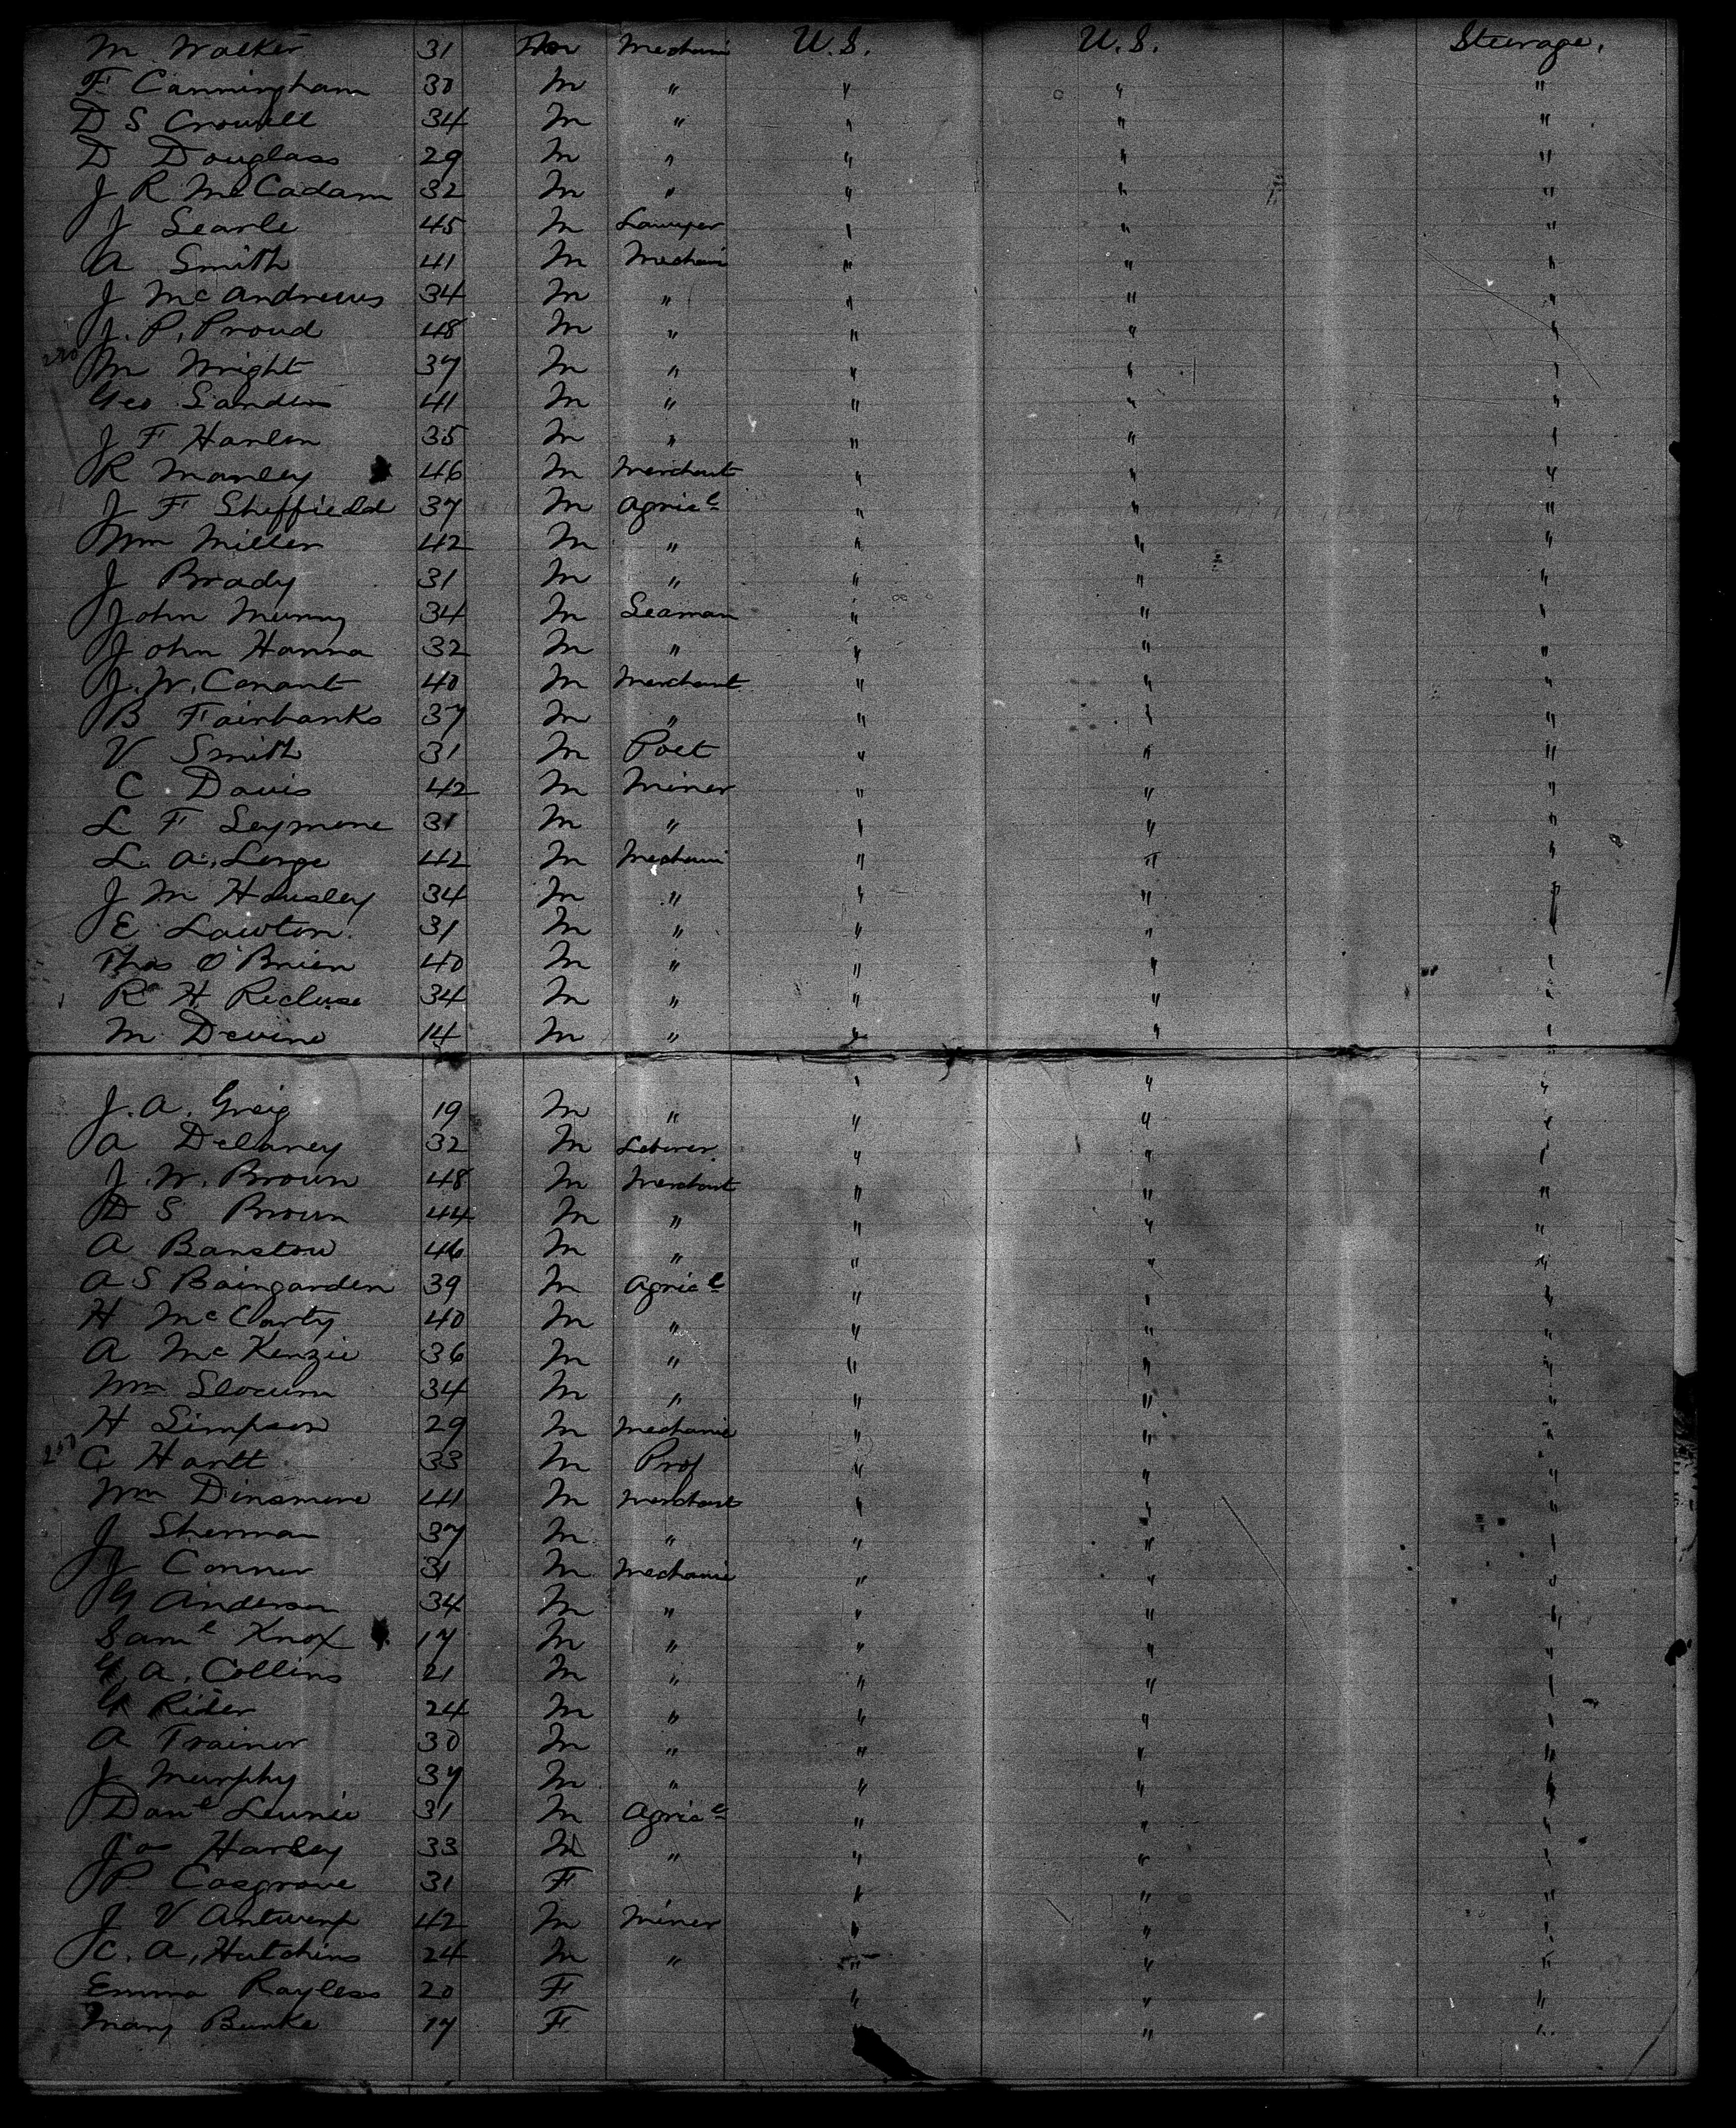 M. Walker 31 M Mechani U.S. U.S. Steerage.
F Cunningham 30 M " " " "
D S Crowell 34 M " " " "
D Douglass 29 M " " " "
J R McCadam 32 M " " " "
J Searle 45 M Lawyer " " "
A Smith 41 M Mechani " " "
J McAndrews 34 M " " " "
J. P. Proud 48 M " " " "
M Wright 37 M " " " "
Geo Sanders 41 M " " " "
J F Hanlon 35 M " " " "
R Manley 46 M Merchant " " "
J F Sheffield 37 M Agricl " " "
Wm Miller 42 M " " " "
J Brady 31 M " " " "
John Munny 34 M Seaman " " "
John Hanna 32 M " " " "
J. W. Conant 40 M Merchant " " "
B Fairbanks 37 M " " " "
V Smith 31 M Poet " " "
C. Davis 42 M Miner " " "
L F Seymore 31 M " " " "
L. A. Lorge 42 M Mechani " " "
J M Housley 34 M " " " "
E. Lawton. 31 M " " " "
Thos O'Brien 40 M " " " "
R H Recluse 34 M " " " "
M. Devine 14 M " " " "
J. A. Greig 19 M " " " "
A Delaney 32 M Leborer. " " "
J. W. Brown 48 M Merchant " " "
D S Brown 44 M " " " "
A Banstow 46 M " " " "
A S Baingarden 39 M Agricl " " "
H McCarty 40 M " " " "
A McKenzie 36 M " " " "
Wm Slocum 34 M " " " "
H Simpson 29 M Mechanic " " "
C Hartt 33 M Prof " " "
Wm Dinsmore 41 M Merchant " " "
J Sherman 37 M " " " "
J Conner 31 M Mechanic " " "
G Anderson 34 M " " " "
Saml Knox 17 M " " " "
G. A. Collins 21 M " " " "
G Rider 24 M " " " "
A Trainor 30 M " " " "
J Murphy 37 M " " " "
Danl Lewnie 31 M Agricl " " "
Jos Harley 33 M " " " "
P. Cosgrove 31 F " " "
J V Antwerp 42 M Miner " " "
C. A. Hutchins 24 M " " " "
Emma Rayless 20 F " " "
Mary Burke 17 F " " "